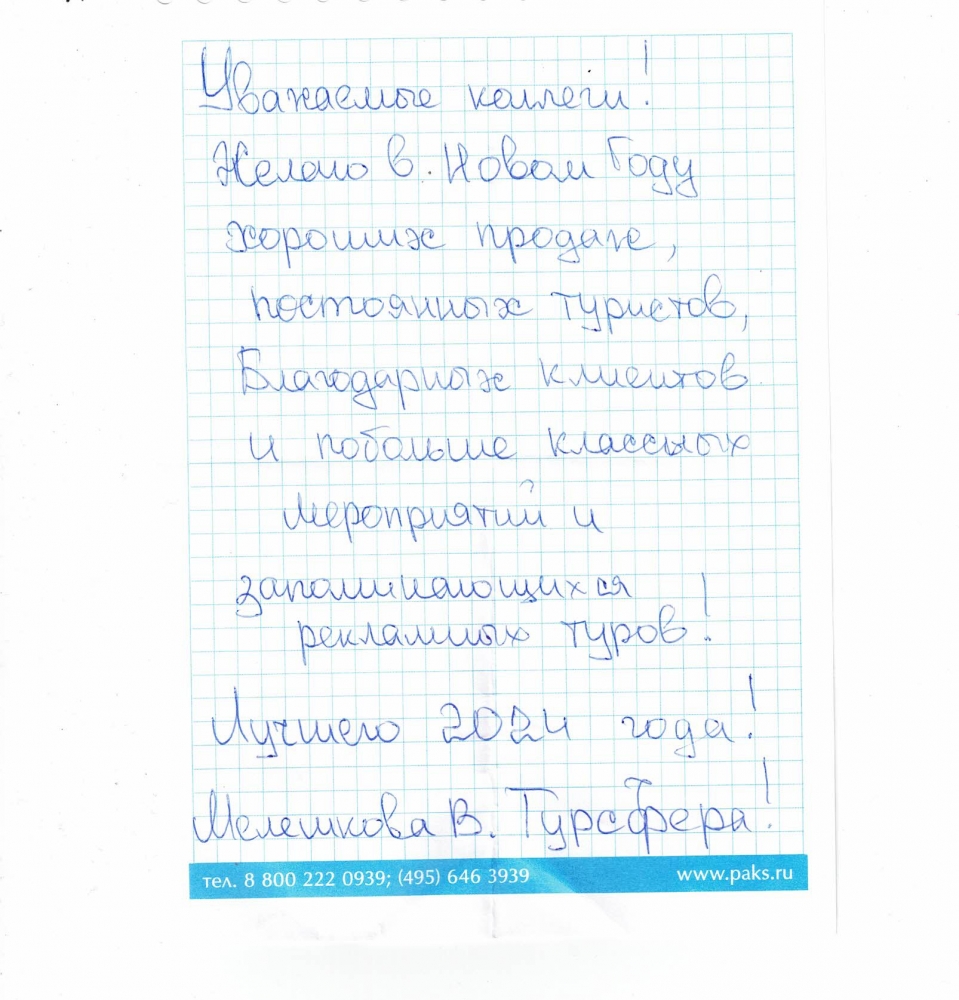 Уважаемые коллеги!
Желаю в Новом Году
хороших продаж,
постоянных туристов,
Благодарных клиентов
и побольше классных
мероприятий и
запоминающихся
рекламных туров!
Лучшего 2024 года!
Мелешкова В. Турсфера!
тел. 8 800 222 0939; (495) 646 3939 www.paks.ru